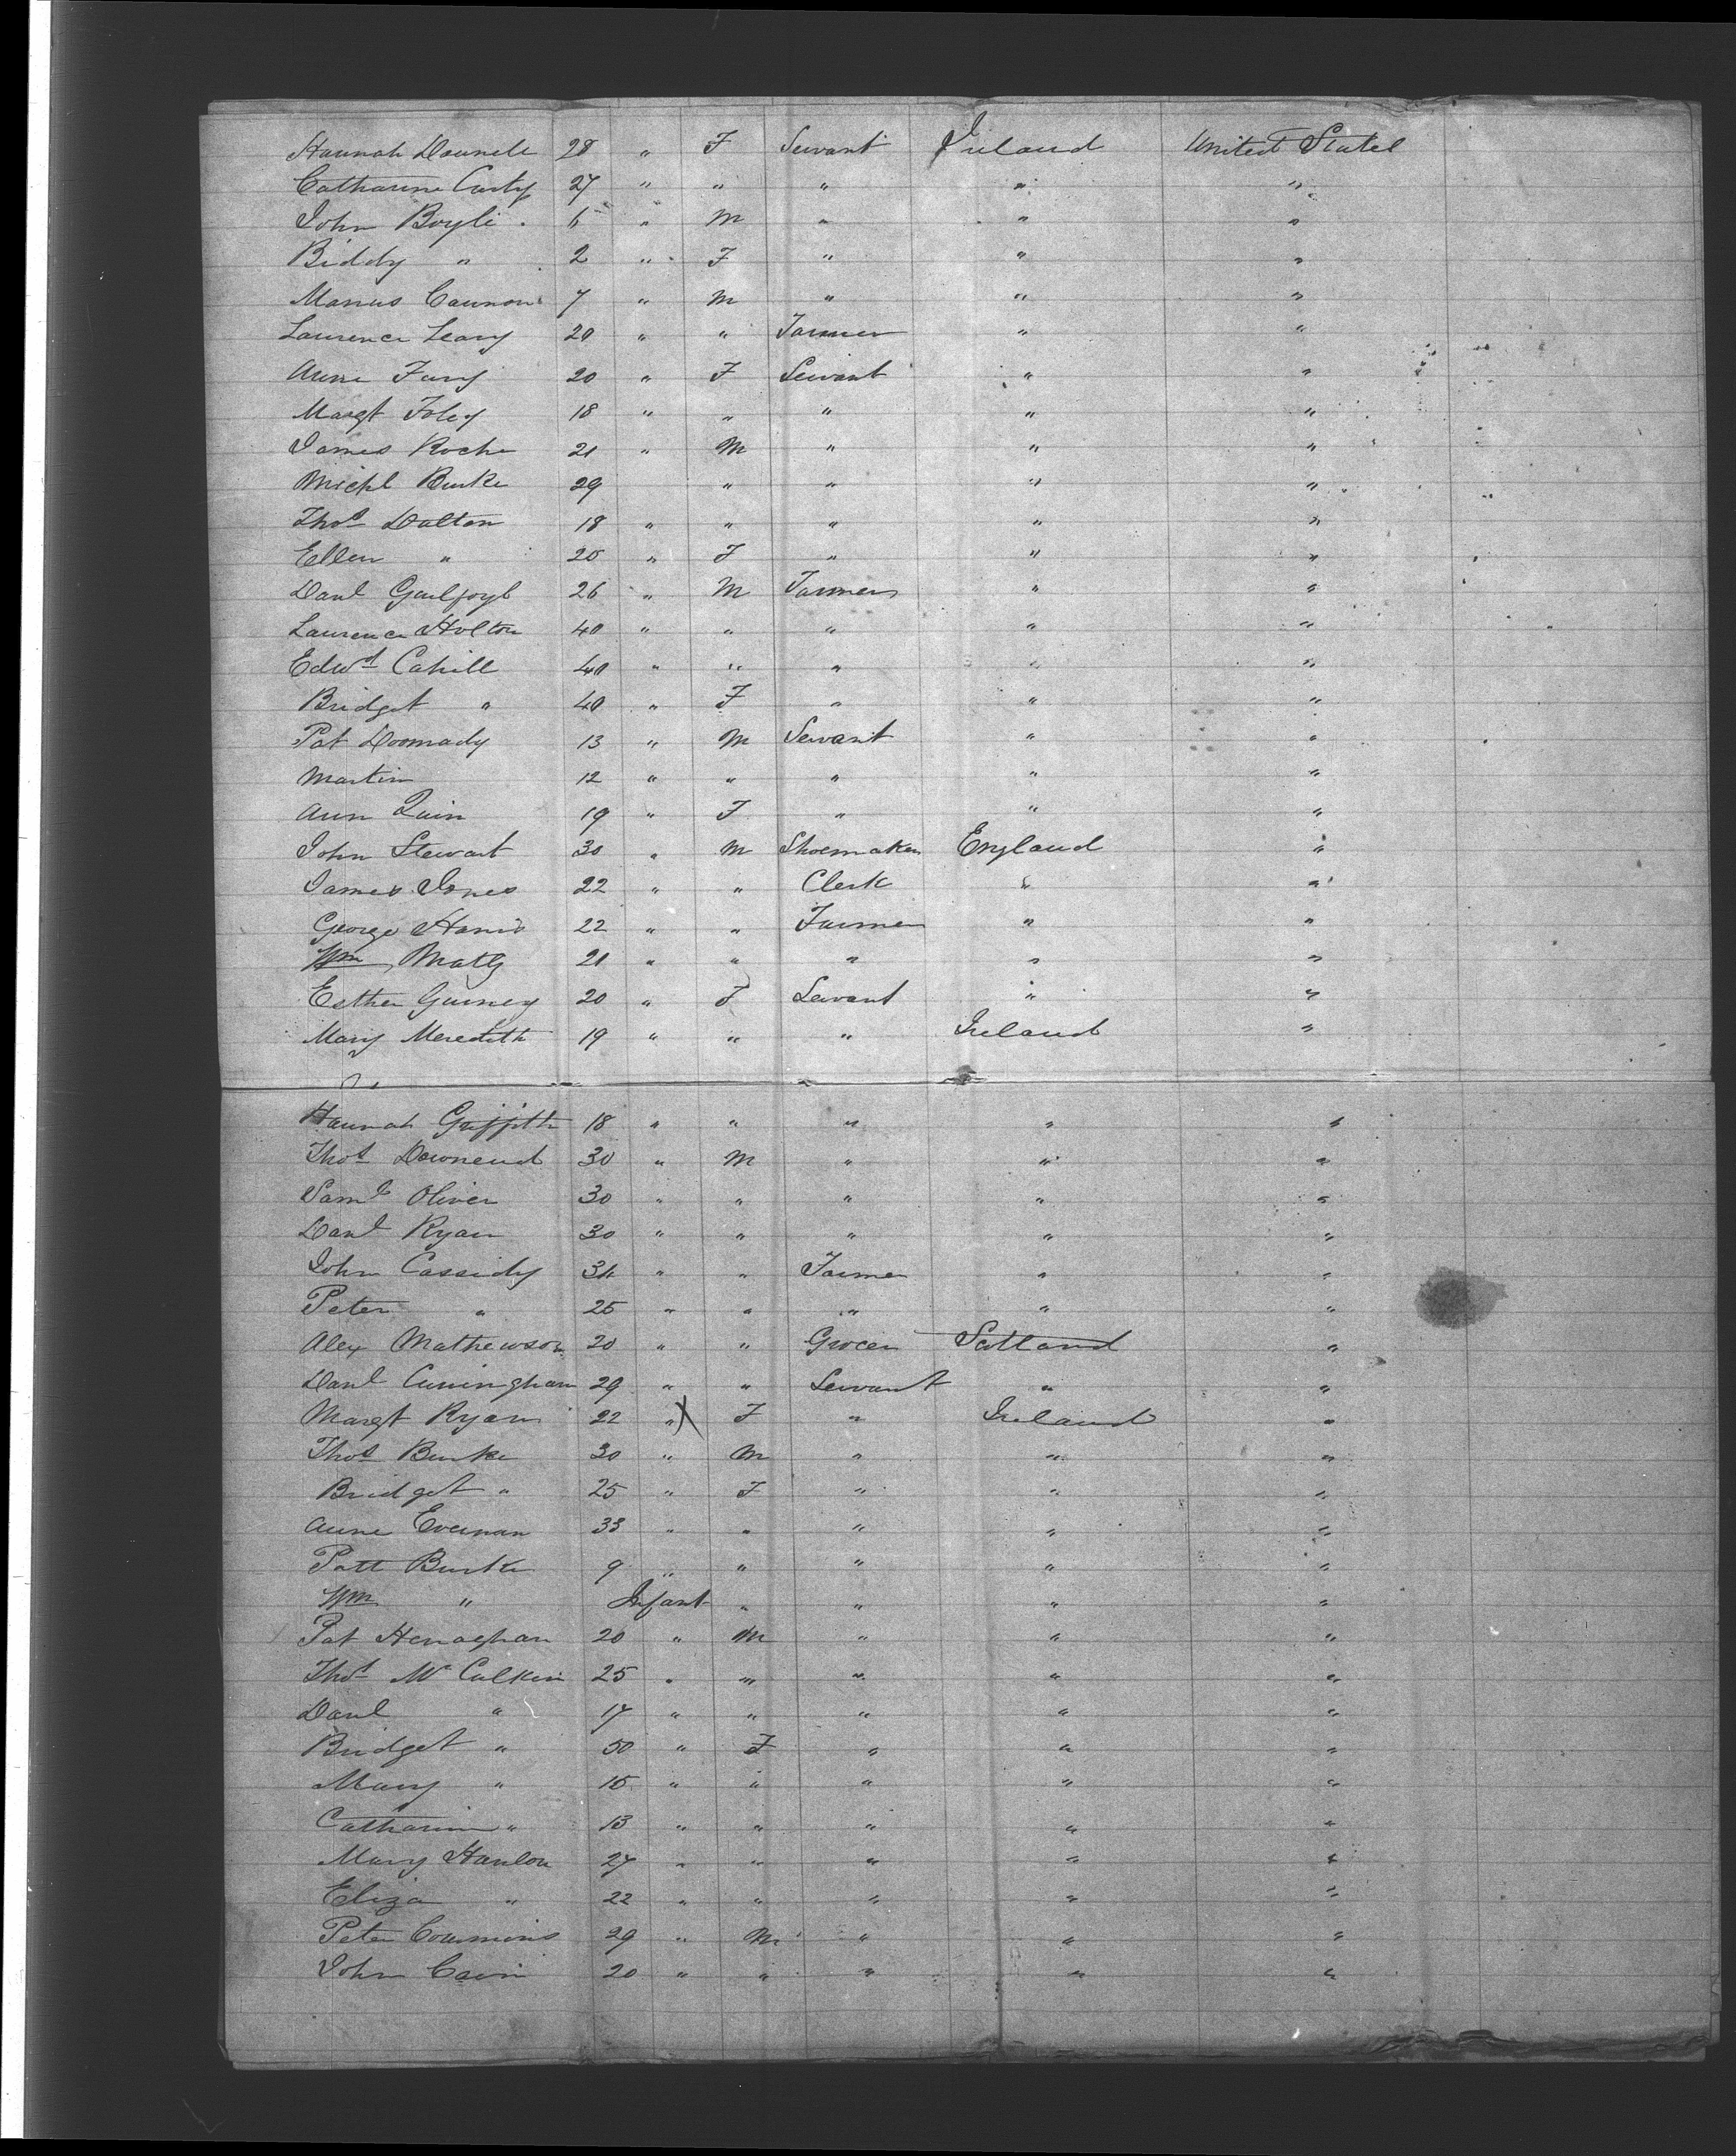 Hannah Dounele 28 " F Servant Ireland United States
Catharine Carty 27 " " " " "
John Boyle 6 " M " " "
Biddy " 2 " F " " "
Manus Cannon 7 " M " " "
Laurence Leary 20 " " Farmer " "
Anne Fury 20 " F Servant " "
Margt Foley 18 " " " " "
James Roche 21 " M " " "
Michl Burke 29 " " " "
Thos Dalton 18 " " " " "
Ellen " 20 " F " " "
Danl Guilfoyl 26 " M Farmer " "
Laurence Holton 40 " " " " "
Edwd Cahill 40 " " " " "
Bridget " 40 " F " " "
Pat Doomady 13 " M Servant " "
Martin 12 " " " " "
Ann Quin 19 " F " " "
John Stewart 30 " M Shoemaker England "
James Jones 22 " " Clerk " "
George Harris 22 " " Farmer " "
Wm 21 " " " " "
Esther Gurney 20 " F Servant " "
Mary Meredith 19 " " " Ireland "
Hannah Griffith 18 " " " " "
Thos Downend 30 " M " " "
Saml Oliver 30 " " " " "
Danl Ryan 30 " " " " "
John Cassidy 34 " " Farmer " "
Peter " 25 " " " " "
Alex Mathewson 20 " " Grocer Scotland "
Danl Cuningham 29 " " Servant " "
Margt Ryan 22 " X F " Ireland "
Thos Burke 30 " M " " "
Bridget " 25 " F " " "
Anne 33 " " " " "
Patt Burke 9 " " " " "
Wm " Infant " " " "
Pat Henaghan 20 " M " " "
Thos McCulkin 25 " " " " "
Danl " 17 " " " " "
Bridget " 50 " F " " "
Mary " 15 " " " " "
Catharine " 13 " " " " "
Mary Hanlon 27 " " " " "
Eliza " 22 " " " " "
Peter Commins 29 " M " " "
John Cavin 20 " " " " "